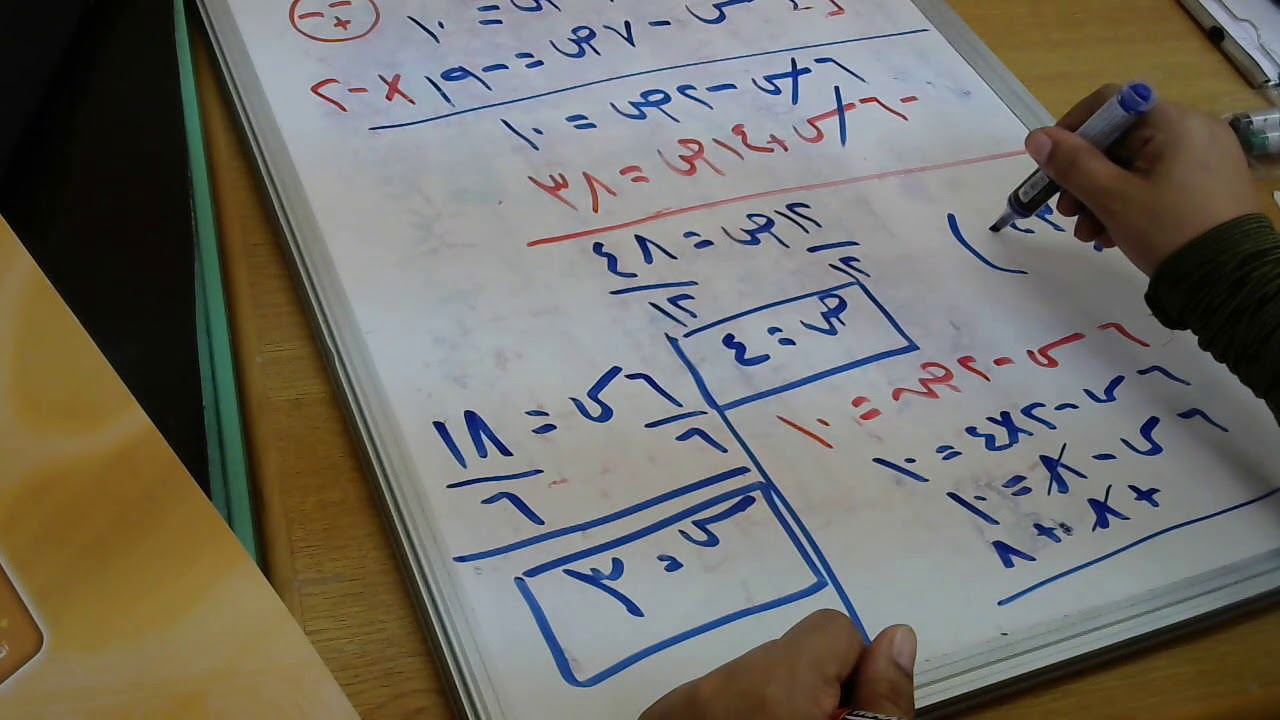 ص = ١٠
س − ٧ص = −١٩ × −٢
٦س − ٢ص = ١٠
−٦س + ١٤ص = ٣٨
١٢ص = ٤٨
١٢ ١٢
ص = ٤
٦س − ٢ص = ١٠
٦س − ٢×٤ = ١٠
٦س − ٨ = ١٠
+٨ +٨
٦س = ١٨
٦ ٦
س = ٣